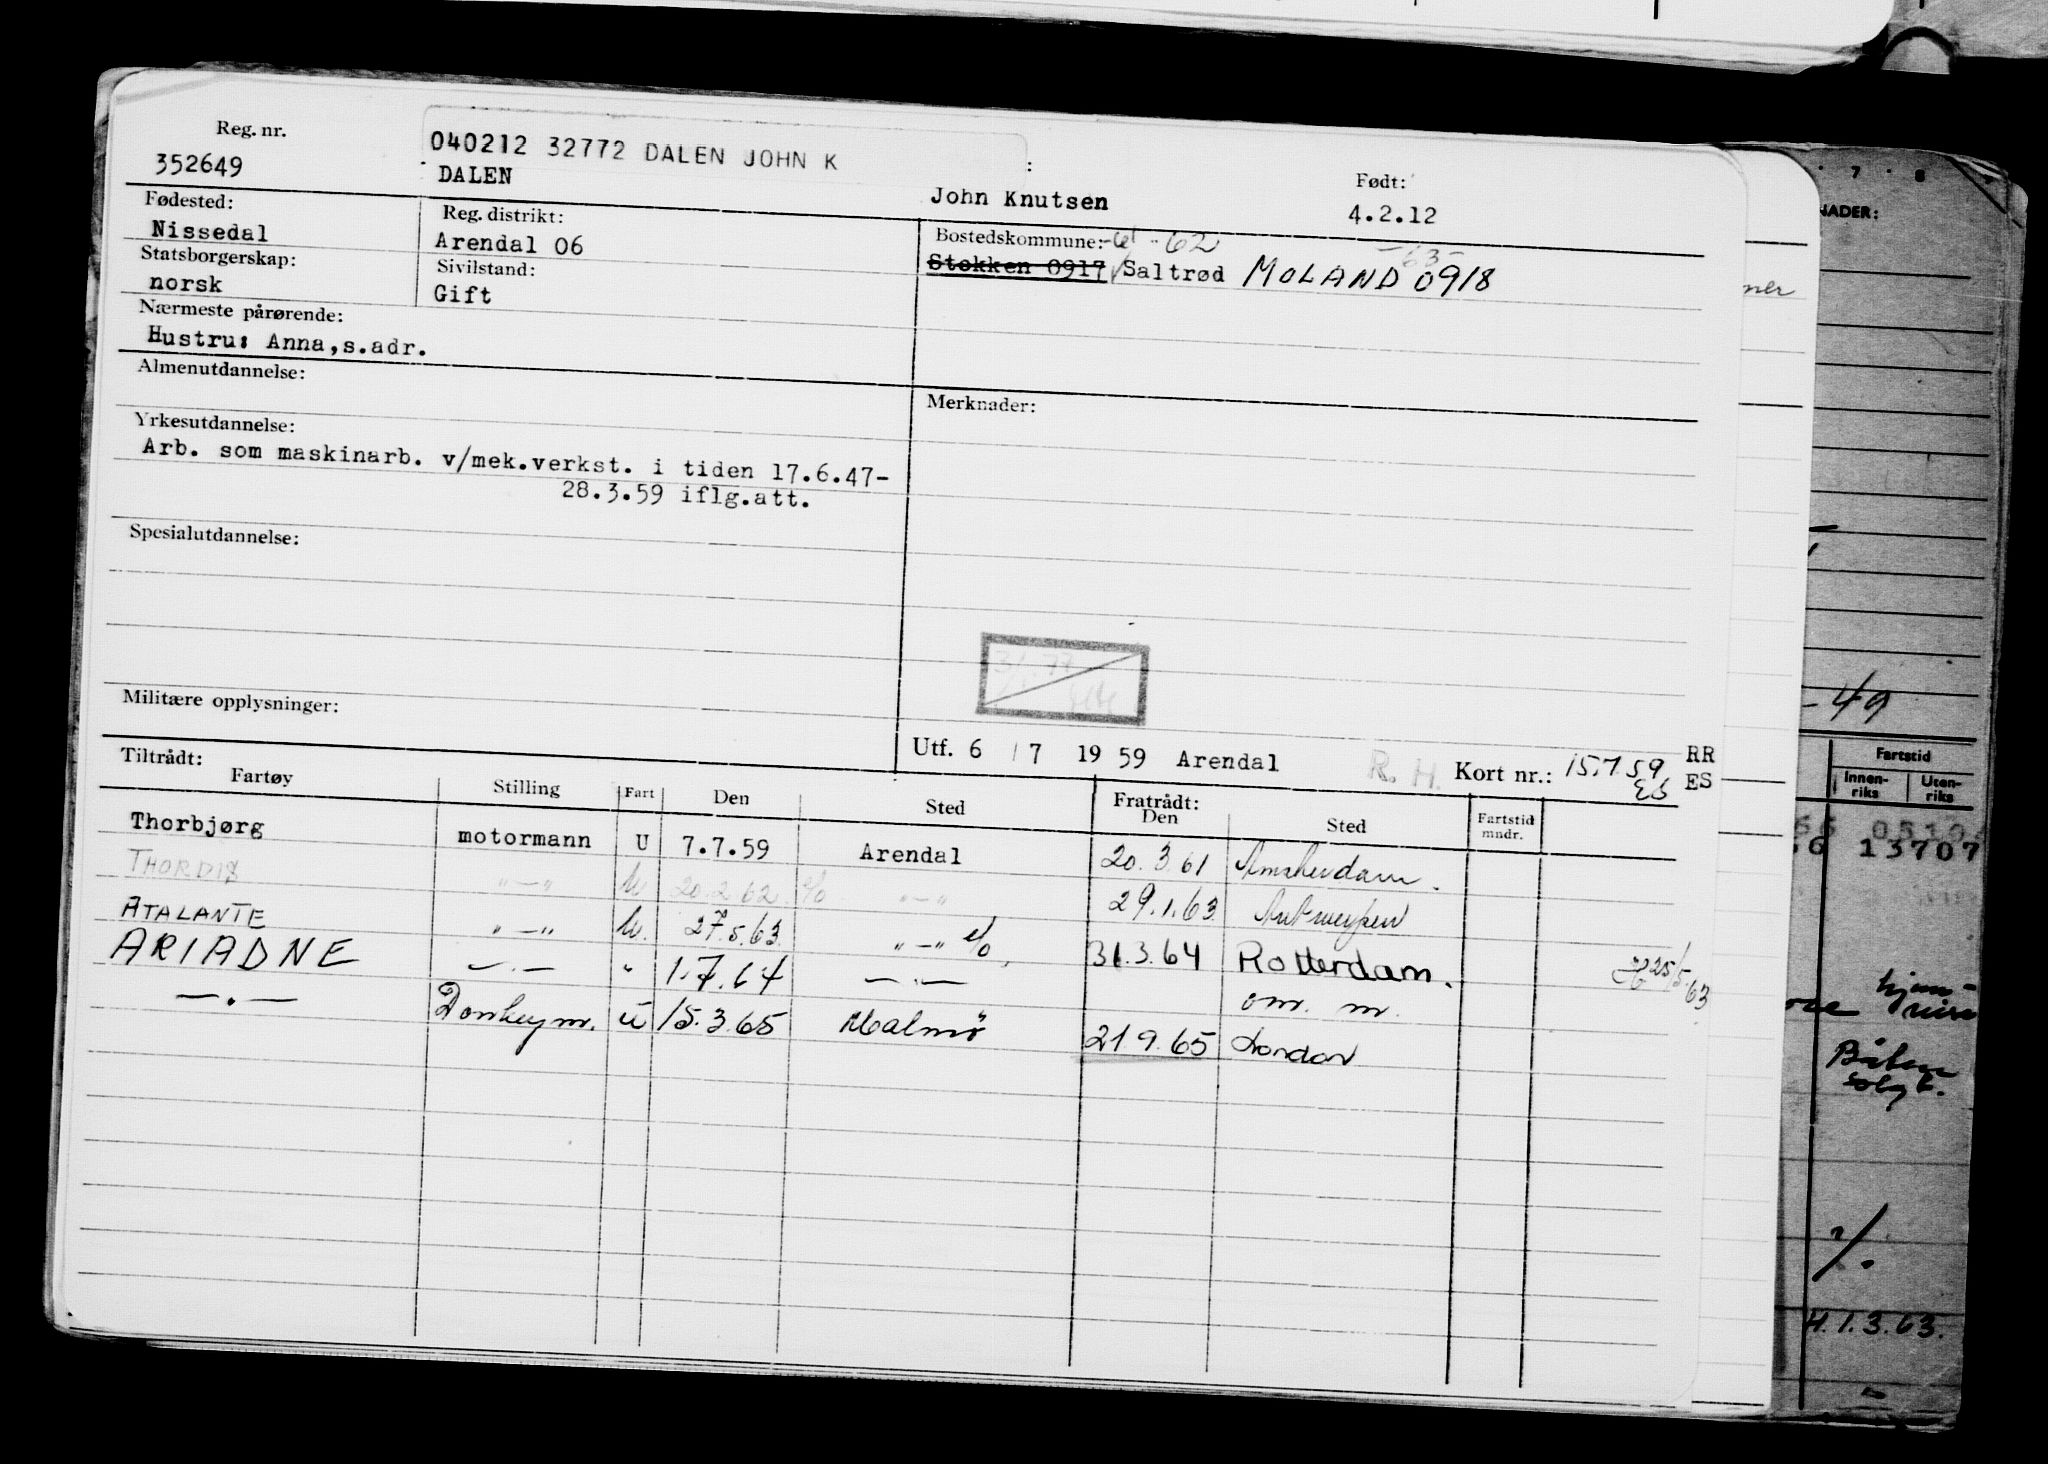 Reg. nr.
352649
040212 32772 DALEN JOHN K
DALEN
John Knutsen
Født:
4.2.12
Fødested:
Nissedal
Reg. distrikt:
Arendal 06
Bostedskommune: -61 -62 -63-
Stokken 0917 Saltrød MOLAND 0918
Statsborgerskap:
norsk
Sivilstand:
Gift
Nærmeste pårørende:
Hustru: Anna,s.adr.
Almenutdannelse:
Merknader:
Yrkesutdannelse:
Arb. som maskinarb. v/mek.verkst. i tiden 17.6.47-
28.3.59 iflg.att.
Spesialutdannelse:
Militære opplysninger:
Utf. 6 / 7 19 59 Arendal R.H. Kort nr.: 15.7.59 RR
ES ES
Tiltrådt:
Fartøy Stilling Fart Den Sted
Fratrådt:
Den Sted Fartstid mndr.
Thorbjørg motormann U 7.7.59 Arendal 20.3.61 Amsterdam.
THORDIS "—" U 20.2.62 "—" 29.1.63 Antwerpen
ATALANTE "—" U. 27.5.63 "—" 31.3.64 Rotterdam. 25/5.63
ARIADNE —.— " 1.7.64 —.— om. m.
—.— Donkeym. U 15.3.65 Malmø 21 9.65 London
7 8
NADER:
ner
-49
Fartstid
Innen-
riks
Uten-
riks
13707
4.1.3.63.